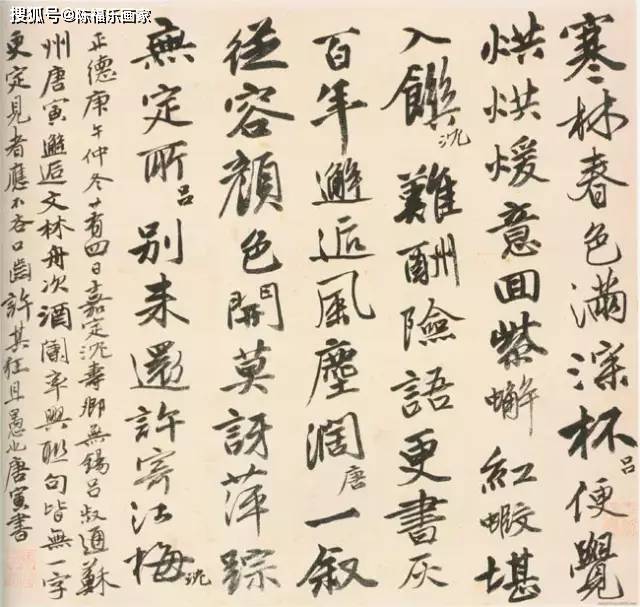 搜狐号@陈福乐画家
寒林春色滿深杯呂便覺
烘烘煖意回紫蠏紅蝦堪
入饌沈難酬險語更書灰
百年邂逅風塵濶唐一叙
從容顏色開莫訝萍踪
無定所呂別來還許寄江梅沈
正德庚午仲冬廿有四日嘉定沈壽卿無錫呂叔通蘇
州唐寅邂逅文林舟次酒闌率興聯句皆無一字
更定見者應不吝口齒許其狂且愚也唐寅書